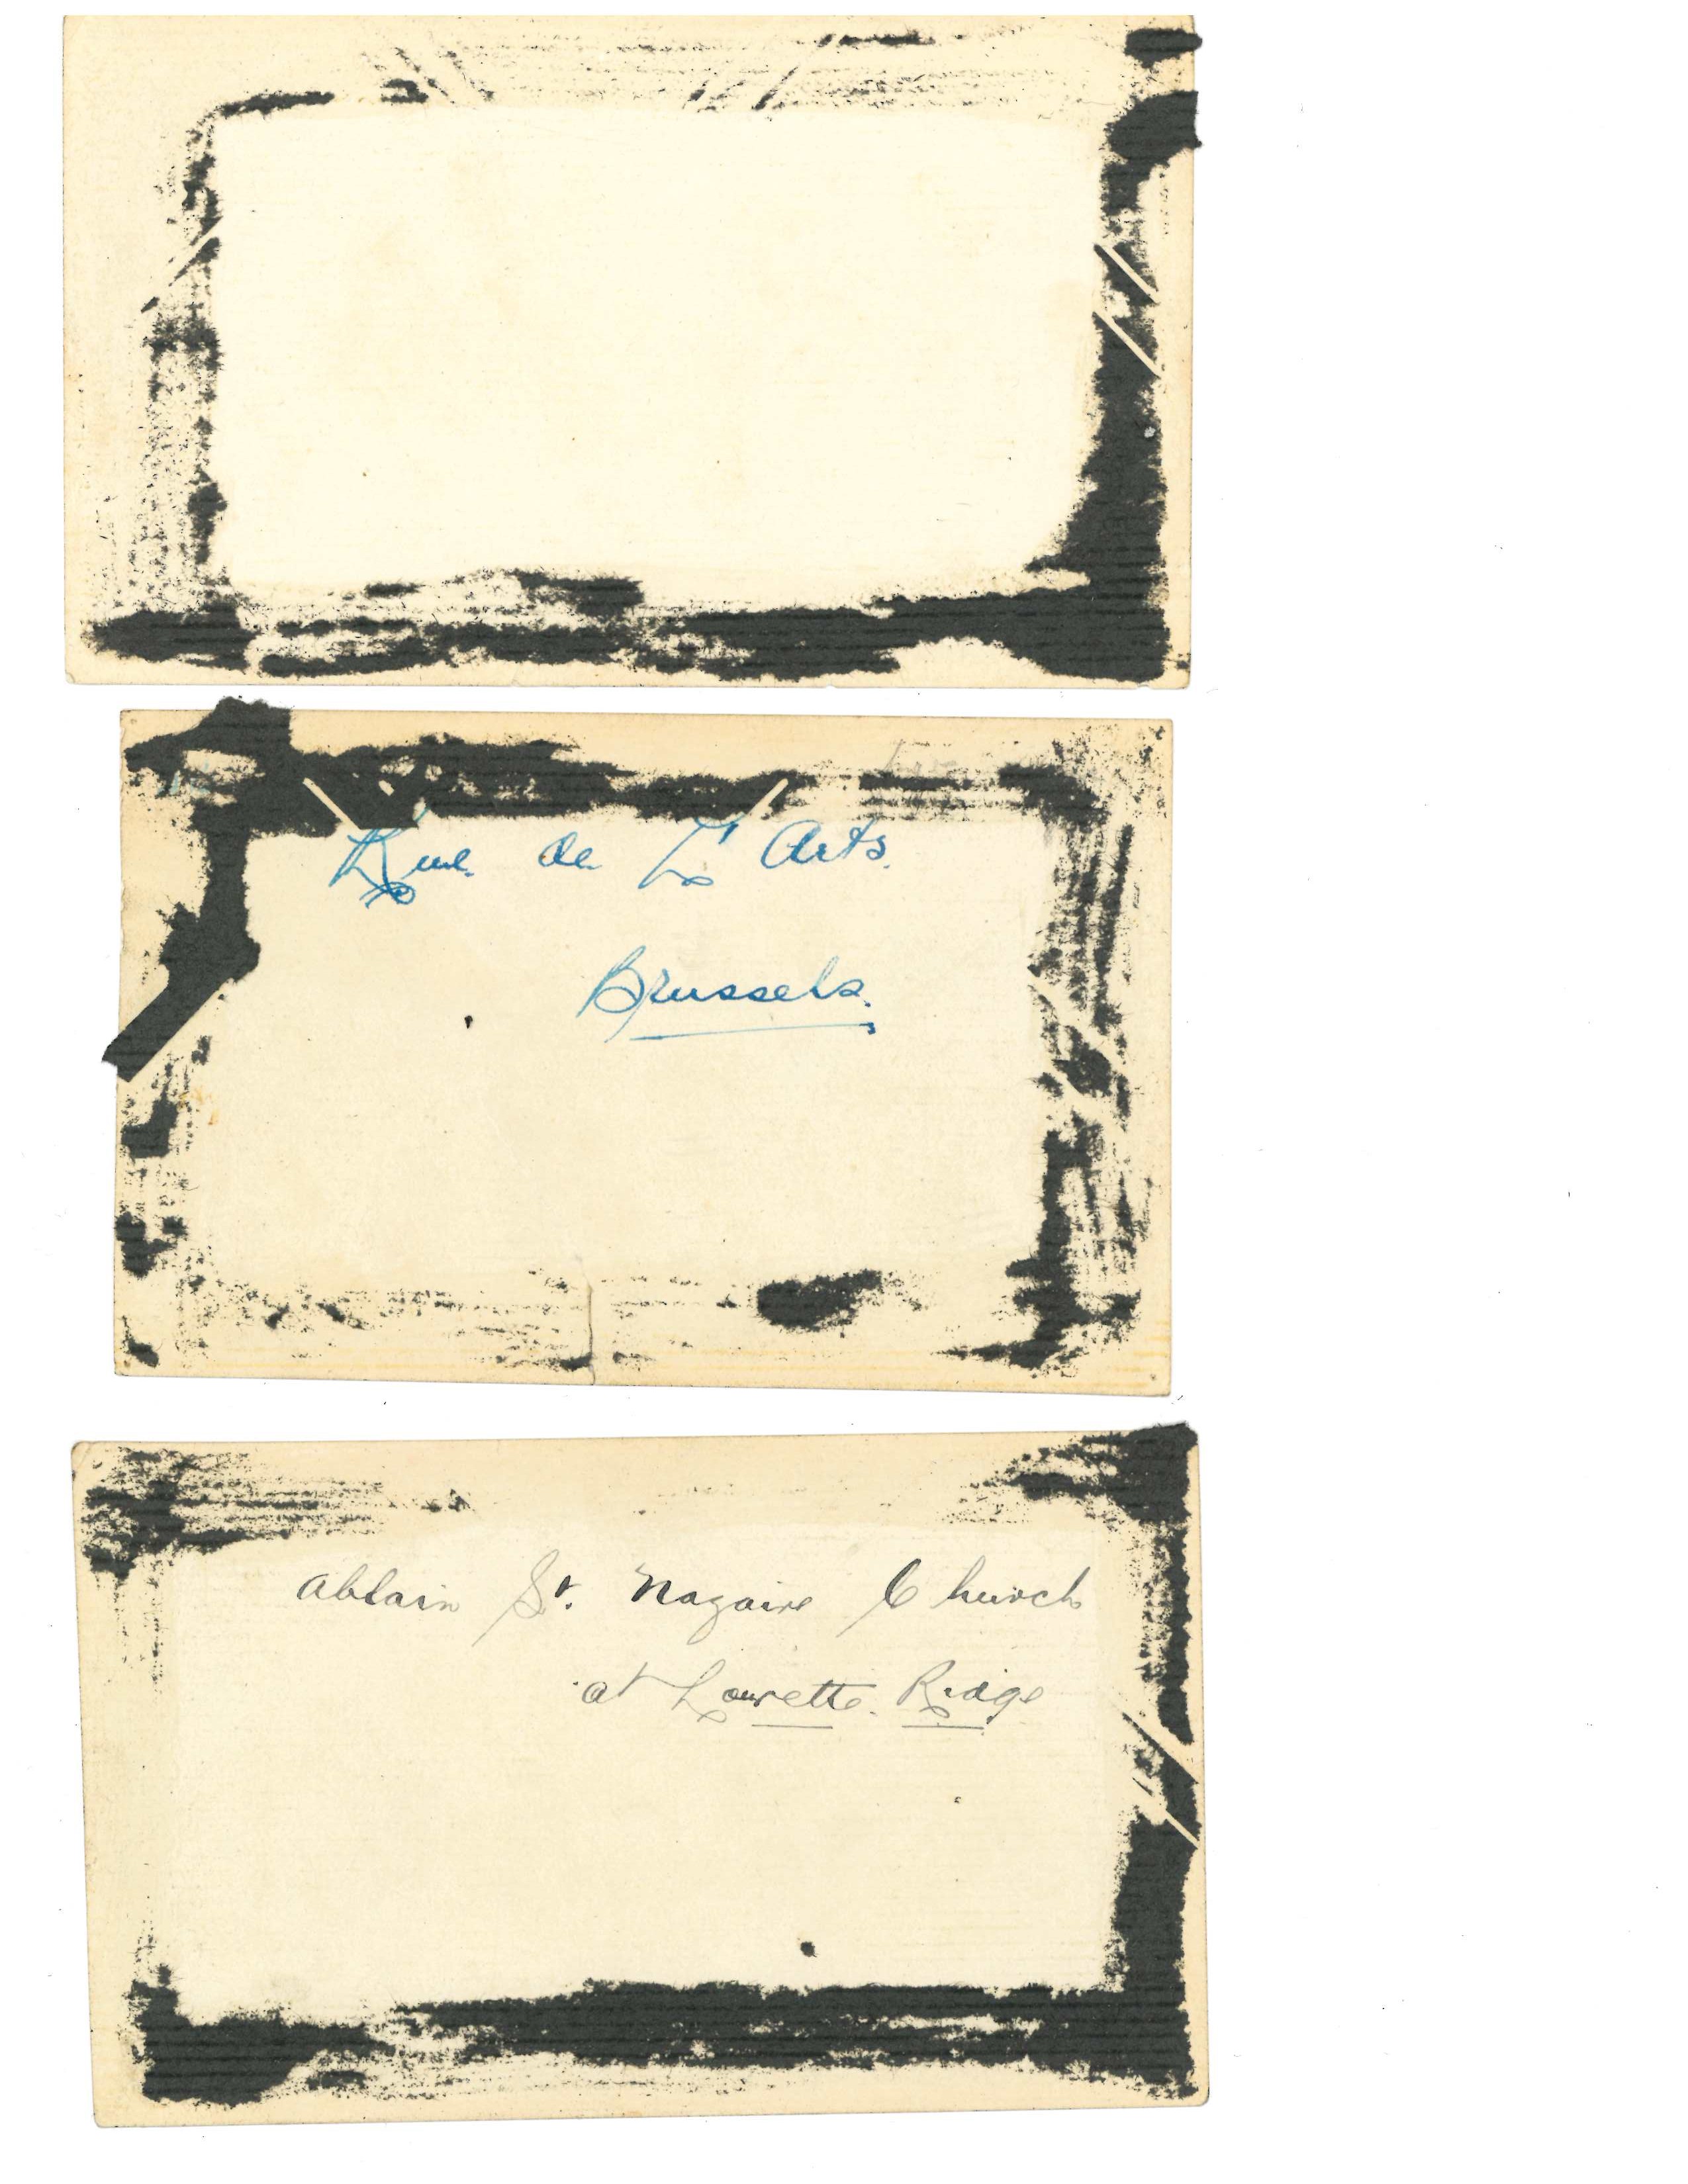 Rue de L' Arts.
Brussels.
Ablain St. Nazaire Church
at Lourette Ridge